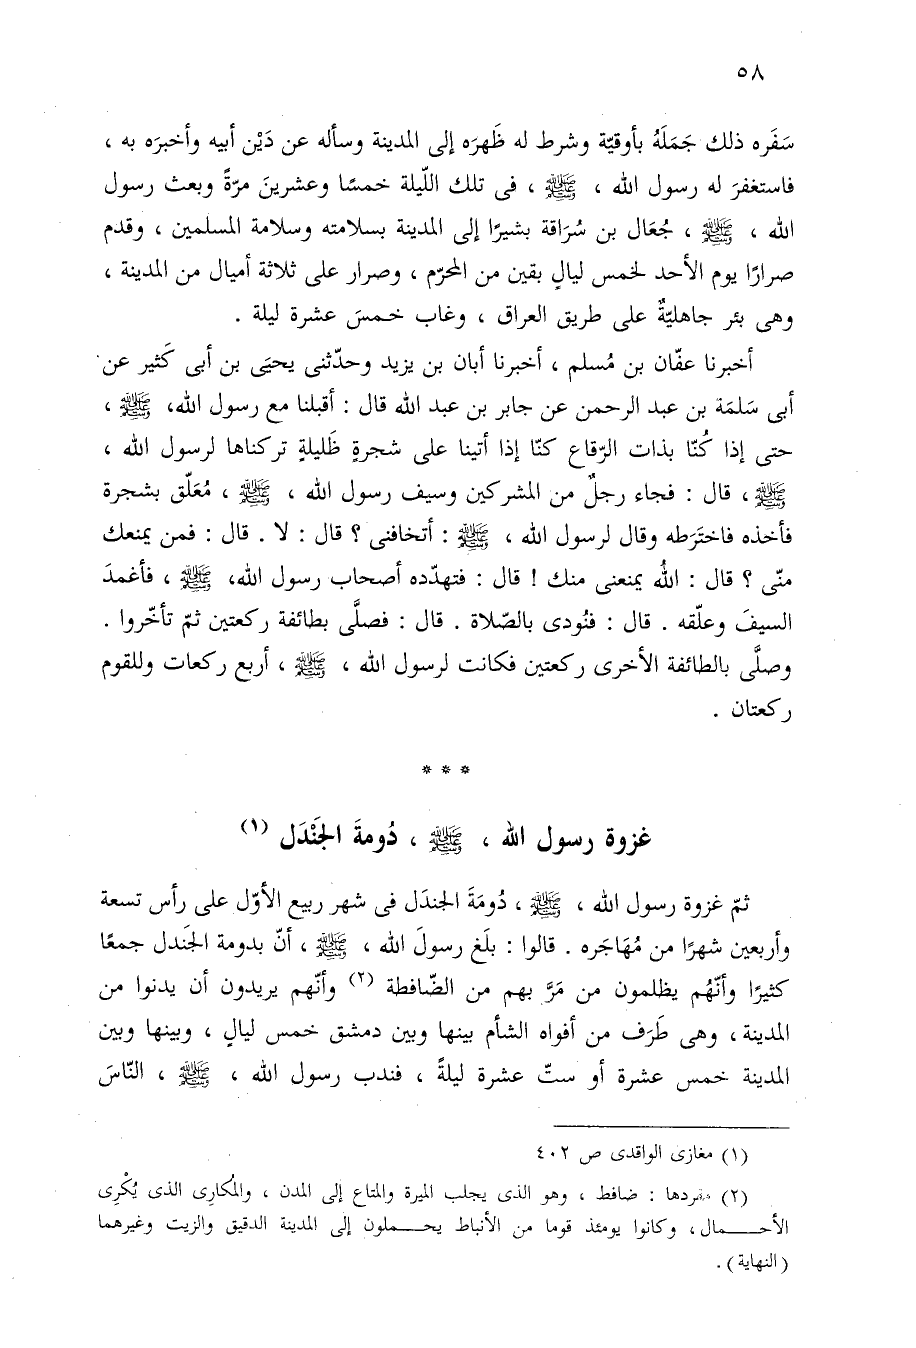 ٥٨
سَفَره ذلك جَمَلَهُ بأوقيّة وشرط له ظَهرَه إلى المدينة وسأله عن دَيْن أبيه وأخبرَه به ،
فاستغفرَ له رسول الله ، ﷺ ، فى تلك اللّيلة خمسًا وعشرينَ مرّةً وبعث رسول
الله ، ﷺ ، جُعَال بن سُرَاقة بشيرًا إلى المدينة بسلامته وسلامة المسلمين ، وقدم
صرارًا يوم الأحد لخمس ليالٍ بقين من المحرّم ، وصرار على ثلاثة أميال من المدينة ،
وهى بئر جاهليّةٌ على طريق العراق ، وغاب خمسَ عشرة ليلة .
أخبرنا عفّان بن مُسلم ، أخبرنا أبان بن يزيد وحدّثنى يحيَى بن أبى كَثير عن
أبى سَلمَة بن عبد الرحمن عن جابر بن عبد الله قال : أقبلنا مع رسول الله، ﷺ ،
حتى إذا كُنّا بذات الرّقاع كنّا إذا أتينا على شجرةٍ ظَليلةٍ تركناها لرسول الله ،
ﷺ ، قال : فجاء رجلٌ من المشركين وسيف رسول الله ، ﷺ ، مُعَلّق بشجرة
فأخذه فاختَرَطه وقال لرسول الله ، ﷺ : أتخافنى ؟ قال : لا . قال : فمن يمنعك
منّى ؟ قال : اللّهُ يمنعنى منك ! قال : فتهدّده أصحاب رسول الله، ﷺ ، فأغمدَ
السيفَ وعلّقه . قال : فنُودى بالصّلاة . قال : فصلَّى بطائفة ركعتين ثمّ تأخّروا .
وصلَّى بالطائفة الأخرى ركعتين فكانت لرسول الله ، ﷺ ، أربع ركعات وللقوم
ركعتان .
* * *
غزوة رسول الله ، ﷺ ، دُومةَ الجَنْدَل (١)
ثمّ غزوة رسول الله ، ﷺ ، دُومَةَ الجندَل فى شهر ربيع الأوّل على رأس تسعة
وأربعين شهرًا من مُهَاجَره . قالوا : بلَغ رسولَ الله ، ﷺ ، أنّ بدومة الجَندل جمعًا
كثيرًا وأنّهُم يظلمون من مَرَّ بهم من الضّافطة (٢) وأنّهم يريدون أن يدنوا من
المدينة ، وهى طَرَف من أفواه الشأم بينها وبين دمشق خمس ليالٍ ، وبينها وبين
المدينة خمس عشرة أو ستّ عشرة ليلةً ، فندب رسول الله ، ﷺ ، النّاسَ
(١) مغازى الواقدى ص ٤٠٢
(٢) مفردها : ضافط ، وهو الذى يجلب الميرة والمتاع إلى المدن ، والمُكارِى الذى يُكْرِى
الأحـــــمال ، وكانوا يومئذ قوما من الأنباط يحـــملون إلى المدينة الدقيق والزيت وغيرهما
(النهاية) .